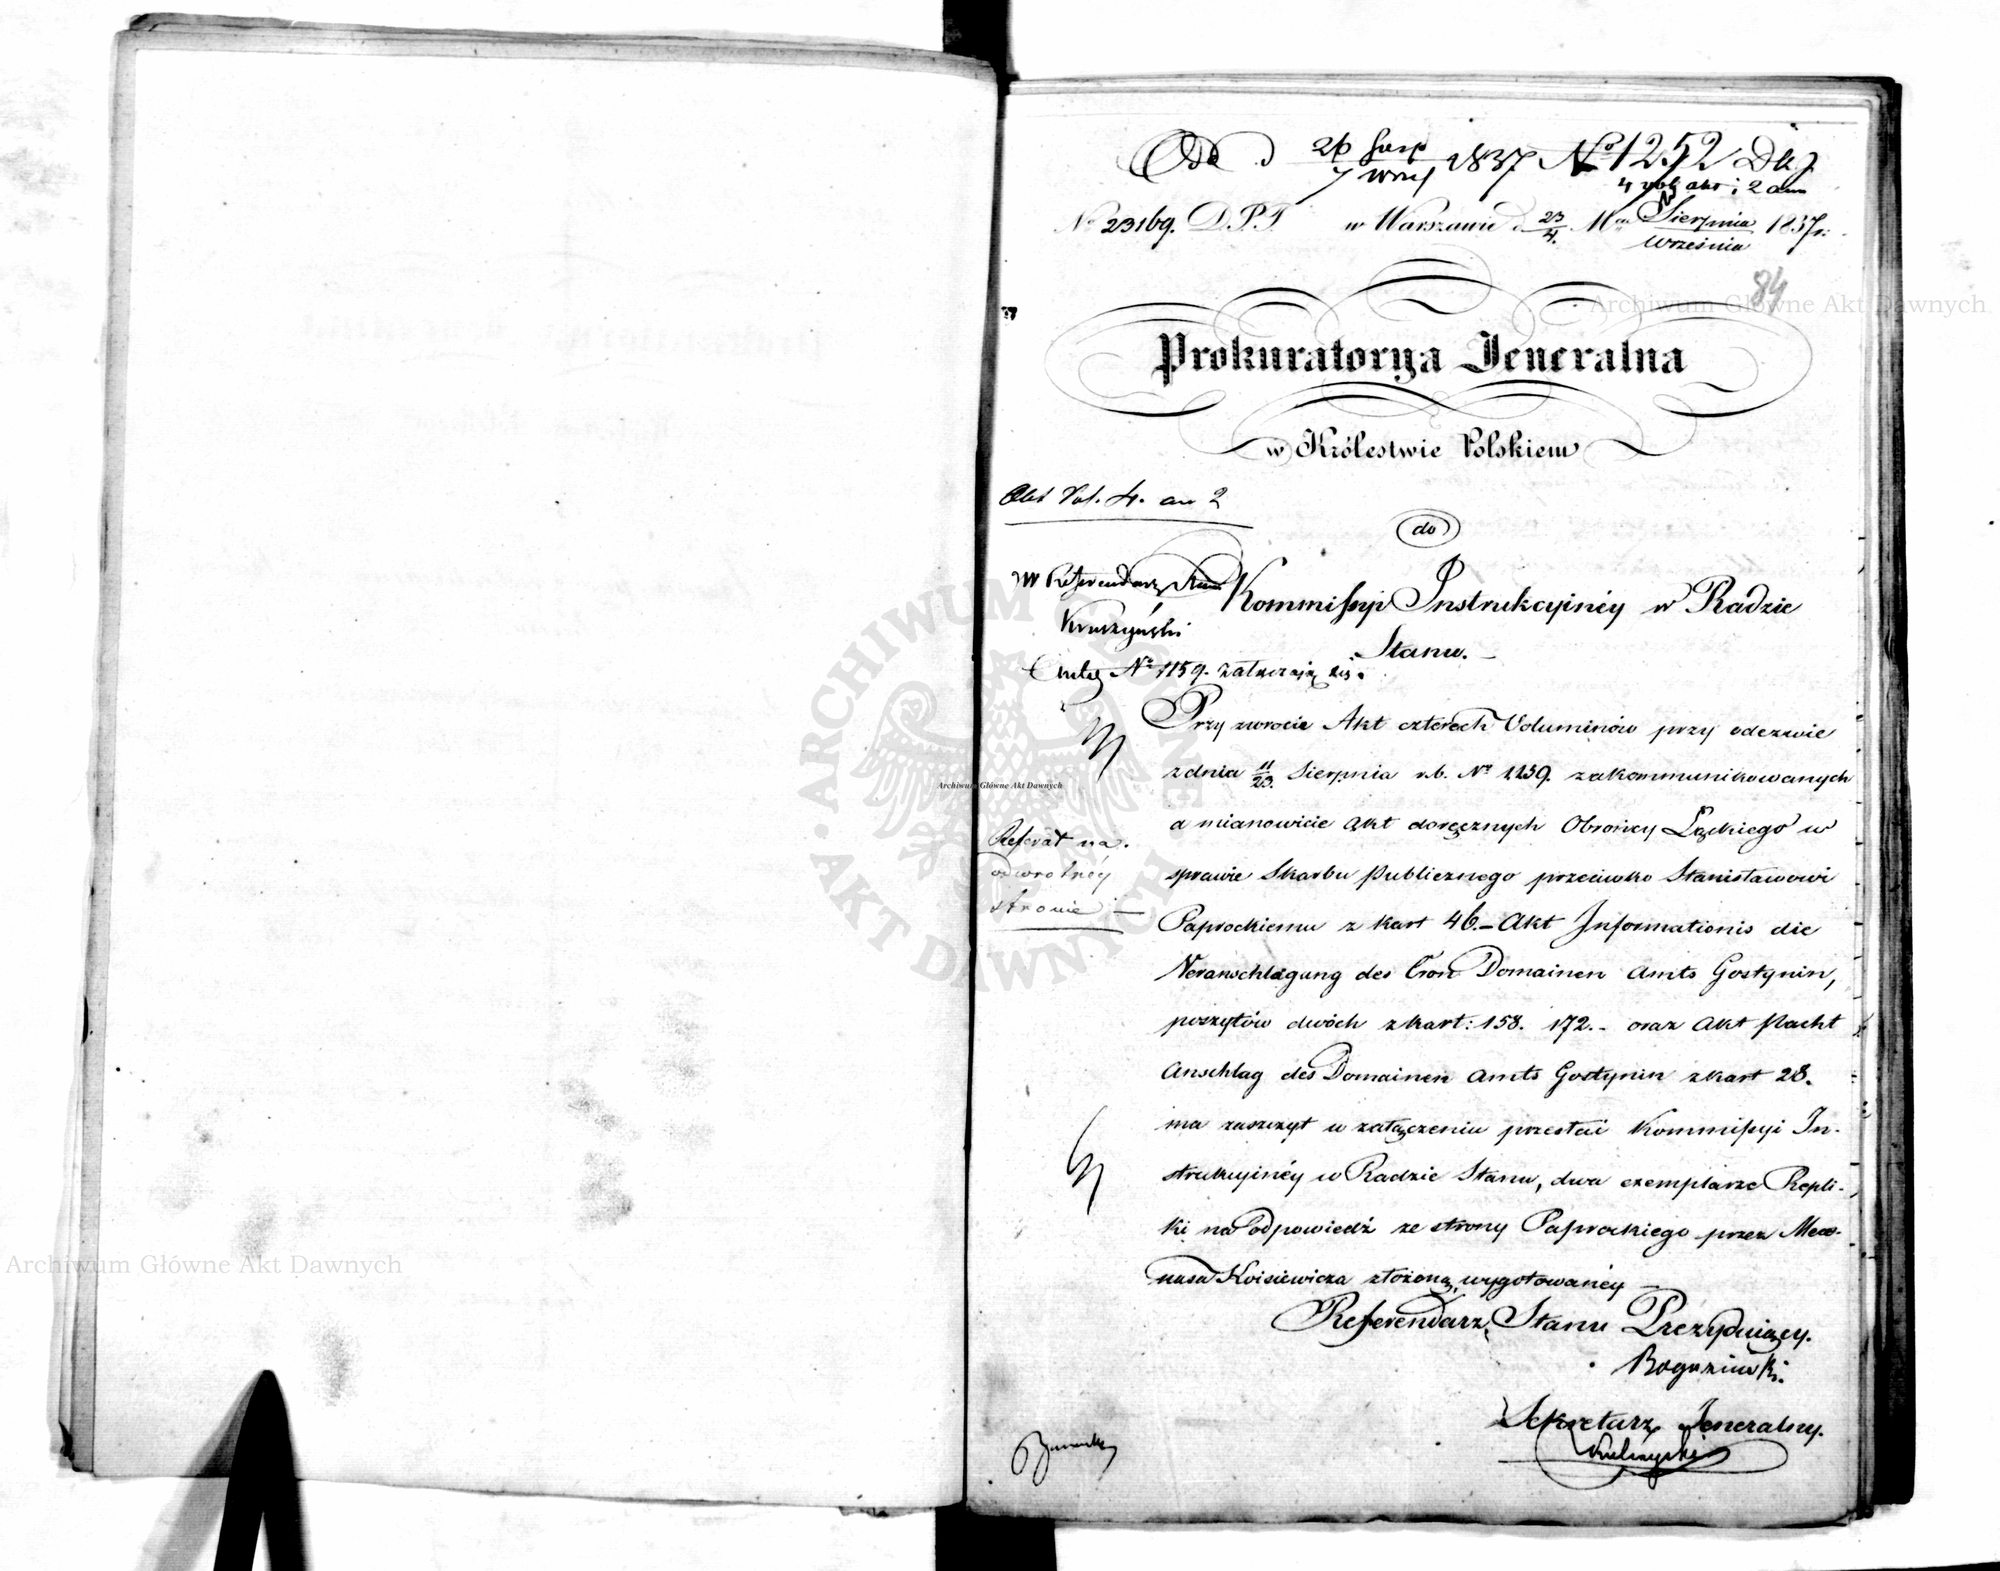 Od d 26 Sierp 1837 No 1252 Dkg
7 Wrz
4 vol akt i 2 ann
No 23169. D.P.S. w Warszawie d 23/4. Mca Sierpnia 1837 r.
Września
84
Archiwum Główne Akt Dawnych
Prokuratorya Jeneralna
w Królestwie Polskiem
Akt Vol. 4. an 2
do
W Referendarz Stanu
Kruszyński
Kommissyi Instrukcyinéy w Radzie
Stanu.
Nr 1159. załączaią się.
Przy zwrocie Akt czterech Voluminów przy odezwie
z dnia 11/23. Sierpnia r.b. Nr 1159. zakommunikowanych
a mianowicie akt doręcznych Obrońcy Łąckiego w
sprawie Skarbu Publicznego przeciwko Stanisławowi
Paprockiemu z kart 46. – Akt Informationis die
Veranschlagung des Cron Domainen Amts Gostynin,
poszytów dwóch z kart: 158. 172. – oraz Akt Pacht
Anschlag des Domainen Amts Gostynin z kart 28.
ma zaszczyt w załączeniu przesłać Kommissyi In-
strukcyinéy w Radzie Stanu, dwa exemplarze Repli-
ki na Odpowiedź ze strony Paprockiego przez Mece-
nasa Kvisiewicza złożoną, wygotowanéy
Referat na
odwrotnéy
stronie –
Referendarz Stanu Prezyduiący.
Sekretarz Jeneralny.
ARCHIWUM GŁÓWNE AKT DAWNYCH
Archiwum Główne Akt Dawnych
Archiwum Główne Akt Dawnych